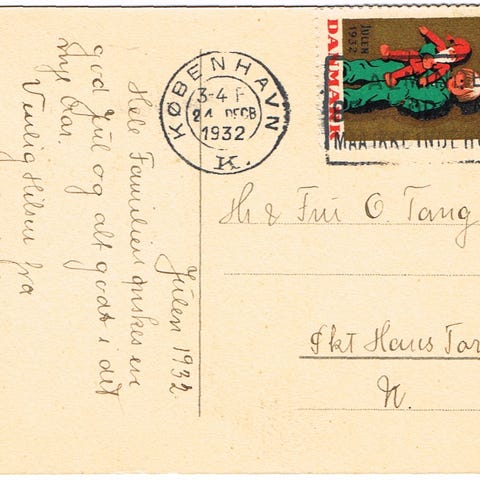 Julen 1932
Hele Familien ønskes en
god Jul og alt godt i det
nye Aar.
Venlig Hilsen fra
KØBENHAVN
3-4 F
24 DECB
1932
K.
JULEN
1932
DANMARK
MAA IKKE INDE
Hr & Fru O. Tang
Skt Hans Tor
N.